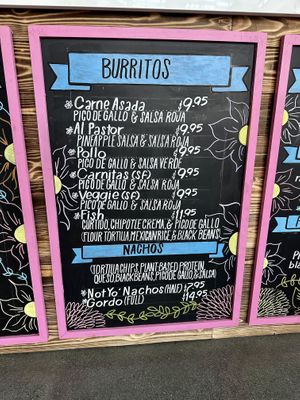 BURRITOS
*Carne Asada $9.95
PICO DE GALLO & SALSA ROJA
*Al Pastor $9.95
PINEAPPLE SALSA & SALSA ROJA
*Pollo $9.95
PICO DE GALLO & SALSA VERDE
*Carnitas (SF) $9.95
PICO DE GALLO & SALSA ROJA
*Veggie (SF) $9.95
PICO DE GALLO & SALSA ROJA
*Fish $11.95
CURTIDO, CHIPOTLE CREMA, & PICO DE GALLO
(FLOUR TORTILLA, MEXICAN RICE, & BLACK BEANS)
NACHOS
(TORTILLA CHIPS, PLANT-BASED PROTEIN,
QUESO, BLACK BEANS, PICO DE GALLO, & SALSA)
*Not Yo' Nachos (HALF) $7.95
*Gordo (FULL) $14.95